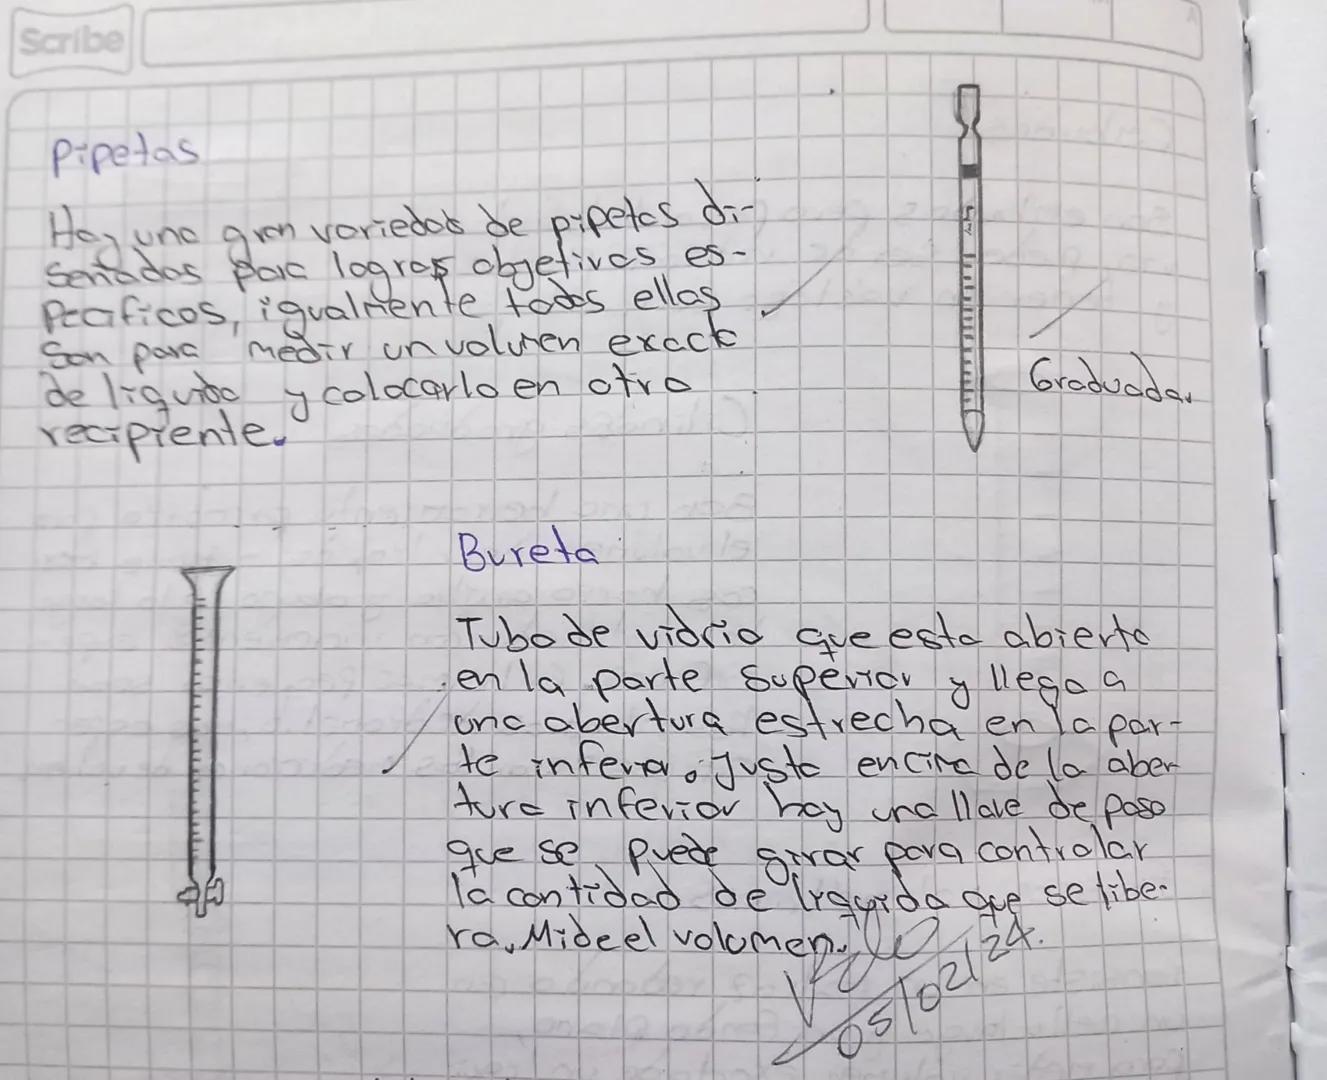 Scribe
Pipetas
Hay una gran variedad de pipetas di-
señadas para lograr objetivos es-
pecificos, igualmente todas ellas
son para medir un volumen exacto
de liquido y colocarlo en otro
recipiente.
Graduada.
Bureta
Tubo de vidrio que esta abierto
en la parte superior y llega a
una abertura estrecha en la par-
te inferior. Justo encima de la aber
tura inferior hay una llave de paso
que se puede girar para controlar
la cantidad de liquido que se libe-
ra. Mide el volumen.
05/02/24.